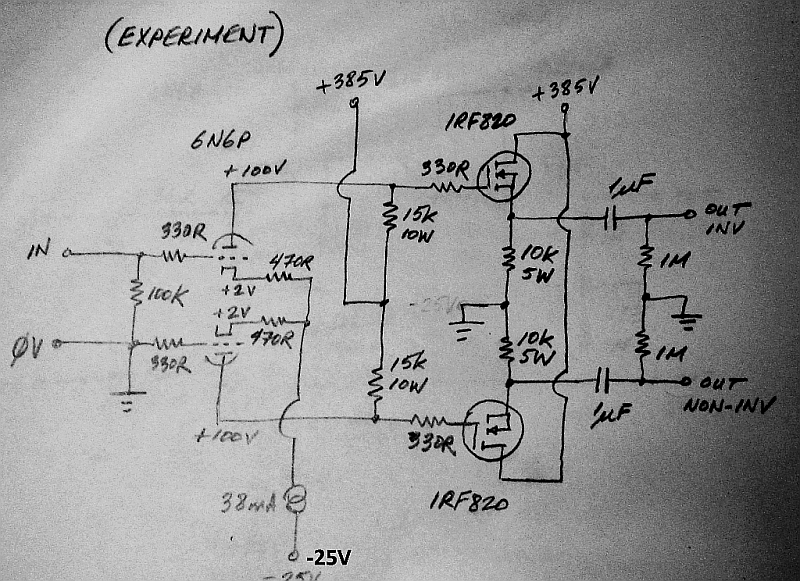 (EXPERIMENT)
+385V
+385V
6N6P
IRF820
+100V
330R
1µF
OUT
INV
15K
10W
330R
IN
470R
10K
5W
1M
+2V
100K
+2V
-25V
ØV
470R
10K
5W
330R
15K
10W
1M
OUT
NON-INV
1µF
+100V
330R
38mA
IRF820
-25V
-25V